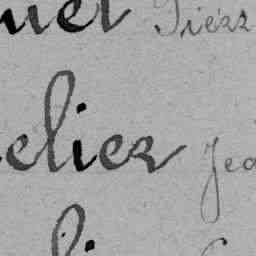 uet Pierr
elier Jea